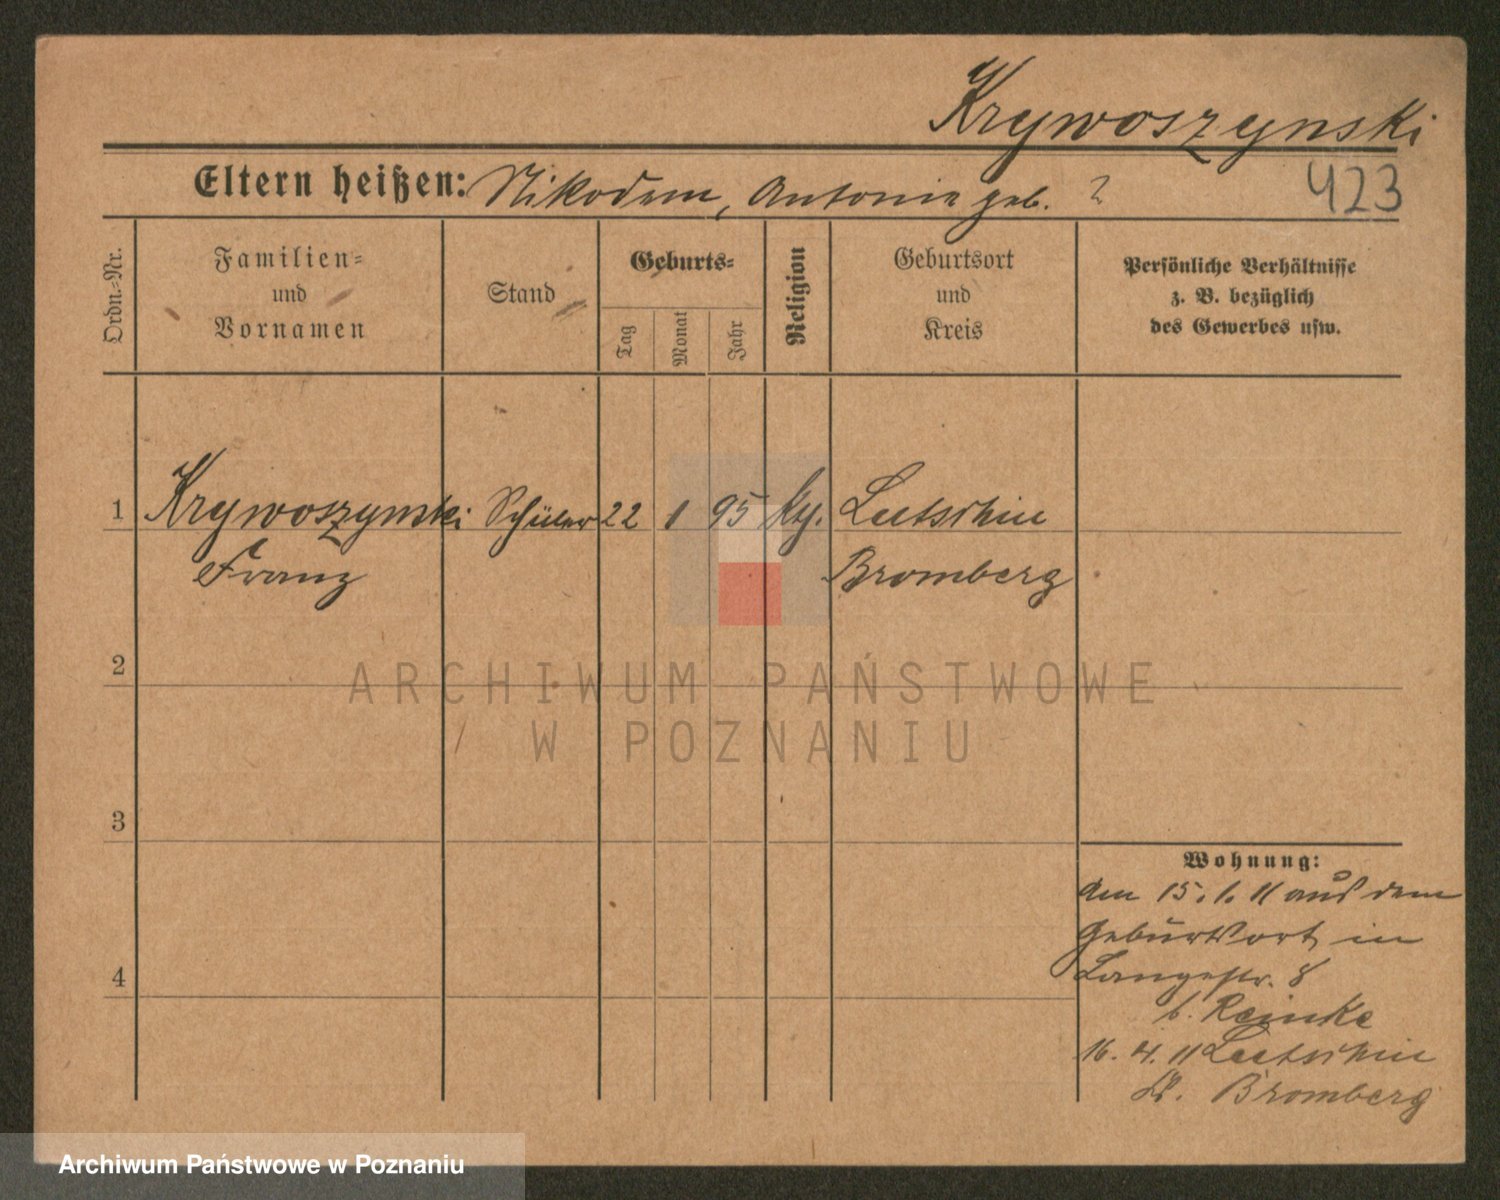 Krywoszynski
Eltern heißen: Nikodem, Antonie geb. ?
423
Ordn.-Nr.
Familien-
und
Vornamen
Stand
Geburts-
Tag
Monat
Jahr
Religion
Geburtsort
und
Kreis
Persönliche Verhältnisse
z. B. bezüglich
des Gewerbes usw.
1 Krywoszynski Schüler 22 1 95 Lutschin
Franz Bromberg
2
ARCHIWUM PAŃSTWOWE
W POZNANIU
3
Wohnung:
am 15. 1. 11 aus dem
Geburtsort in
4
Langestr. 8
b. Reinke
16. 4. 11 Lutschin
Kr. Bromberg
Archiwum Państwowe w Poznaniu